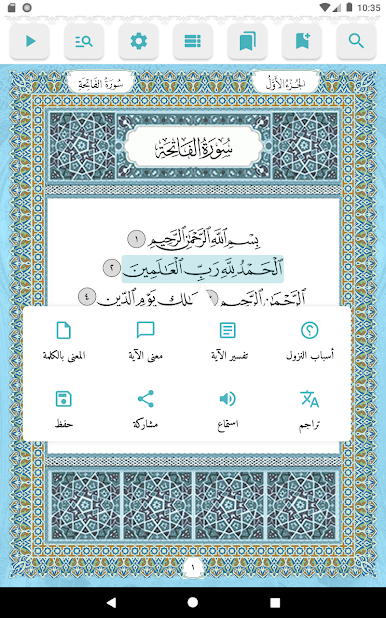 10:35
الجزء الأول
سورة الفاتحة
سُورَةُ الفَاتِحَةِ
بِسْمِ اللَّهِ الرَّحْمَٰنِ الرَّحِيمِ ١
الْحَمْدُ لِلَّهِ رَبِّ الْعَالَمِينَ ٢
الرَّحْمَٰنِ الرَّحِيمِ مَالِكِ يَوْمِ الدِّينِ ٤
أسباب النزول
تفسير الآية
معنى الآية
المعنى بالكلمة
تراجم
استماع
مشاركة
حفظ
١